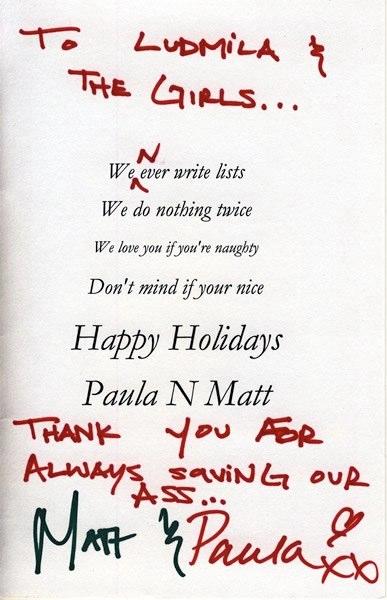 To LUDMILA &
THE GIRLS...
We Never write lists
We do nothing twice
We love you if you're naughty
Don't mind if your nice
Happy Holidays
Paula N Matt
THANK YOU FOR
ALWAYS SAVING OUR
ASS...
Matt & Paula xx